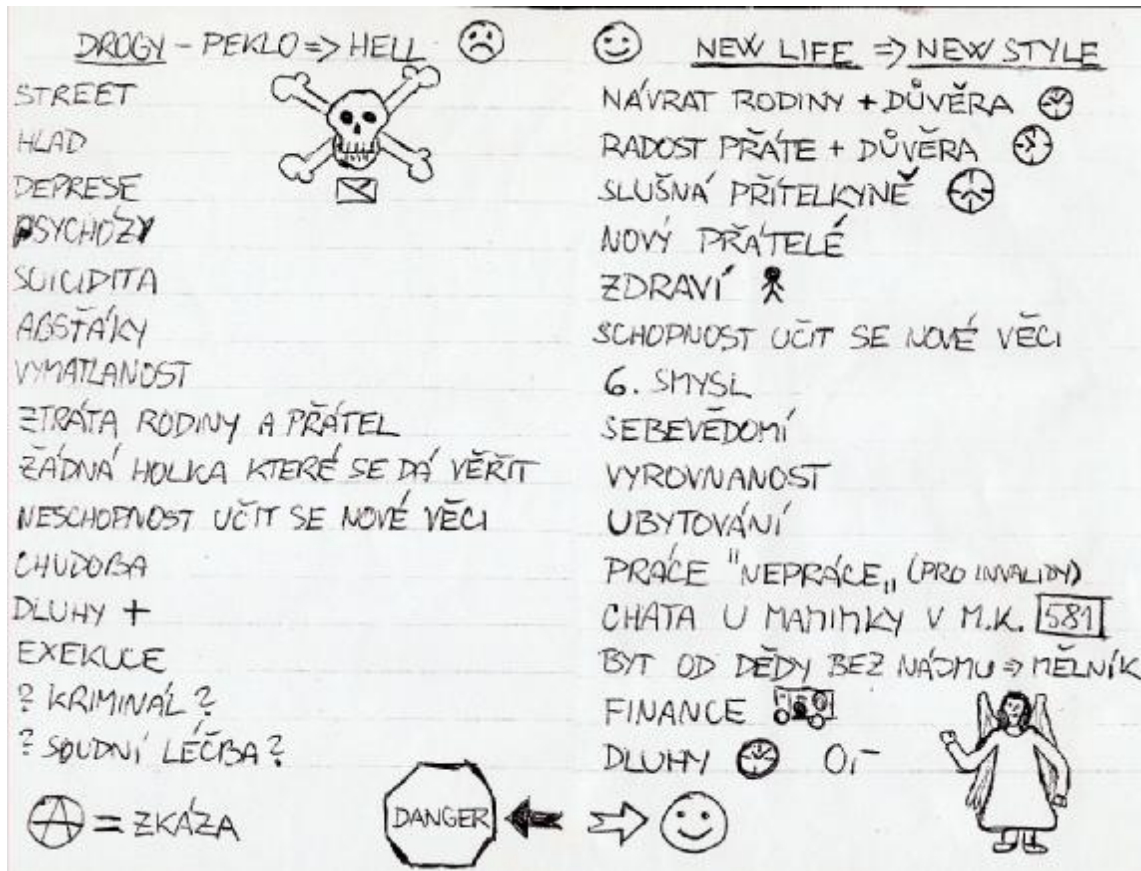 DROGY - PEKLO => HELL
STREET
HLAD
DEPRESE
PSYCHÓZY
SUICIDITA
ABSŤÁKY
VYMATLANOST
ZTRÁTA RODINY A PŘÁTEL
ŽÁDNÁ HOLKA KTERÉ SE DÁ VĚŘIT
NESCHOPNOST UČIT SE NOVÉ VĚCI
CHUDOBA
DLUHY +
EXEKUCE
? KRIMINÁL ?
? SOUDNÍ LÉČBA ?
A = ZKÁZA
DANGER
NEW LIFE => NEW STYLE
NÁVRAT RODINY + DŮVĚRA
RADOST PŘÁTE + DŮVĚRA
SLUŠNÁ PŘÍTELKYNĚ
NOVÝ PŘÁTELÉ
ZDRAVÍ
SCHOPNOST UČIT SE NOVÉ VĚCI
6. SMYSL
SEBEVĚDOMÍ
VYROVNANOST
UBYTOVÁNÍ
PRÁCE "NEPRÁCE„ (PRO INVALIDY)
CHATA U MAMINKY V M.K. 581
BYT OD DĚDY BEZ NÁJMU => MĚLNÍK
FINANCE
DLUHY 0,-